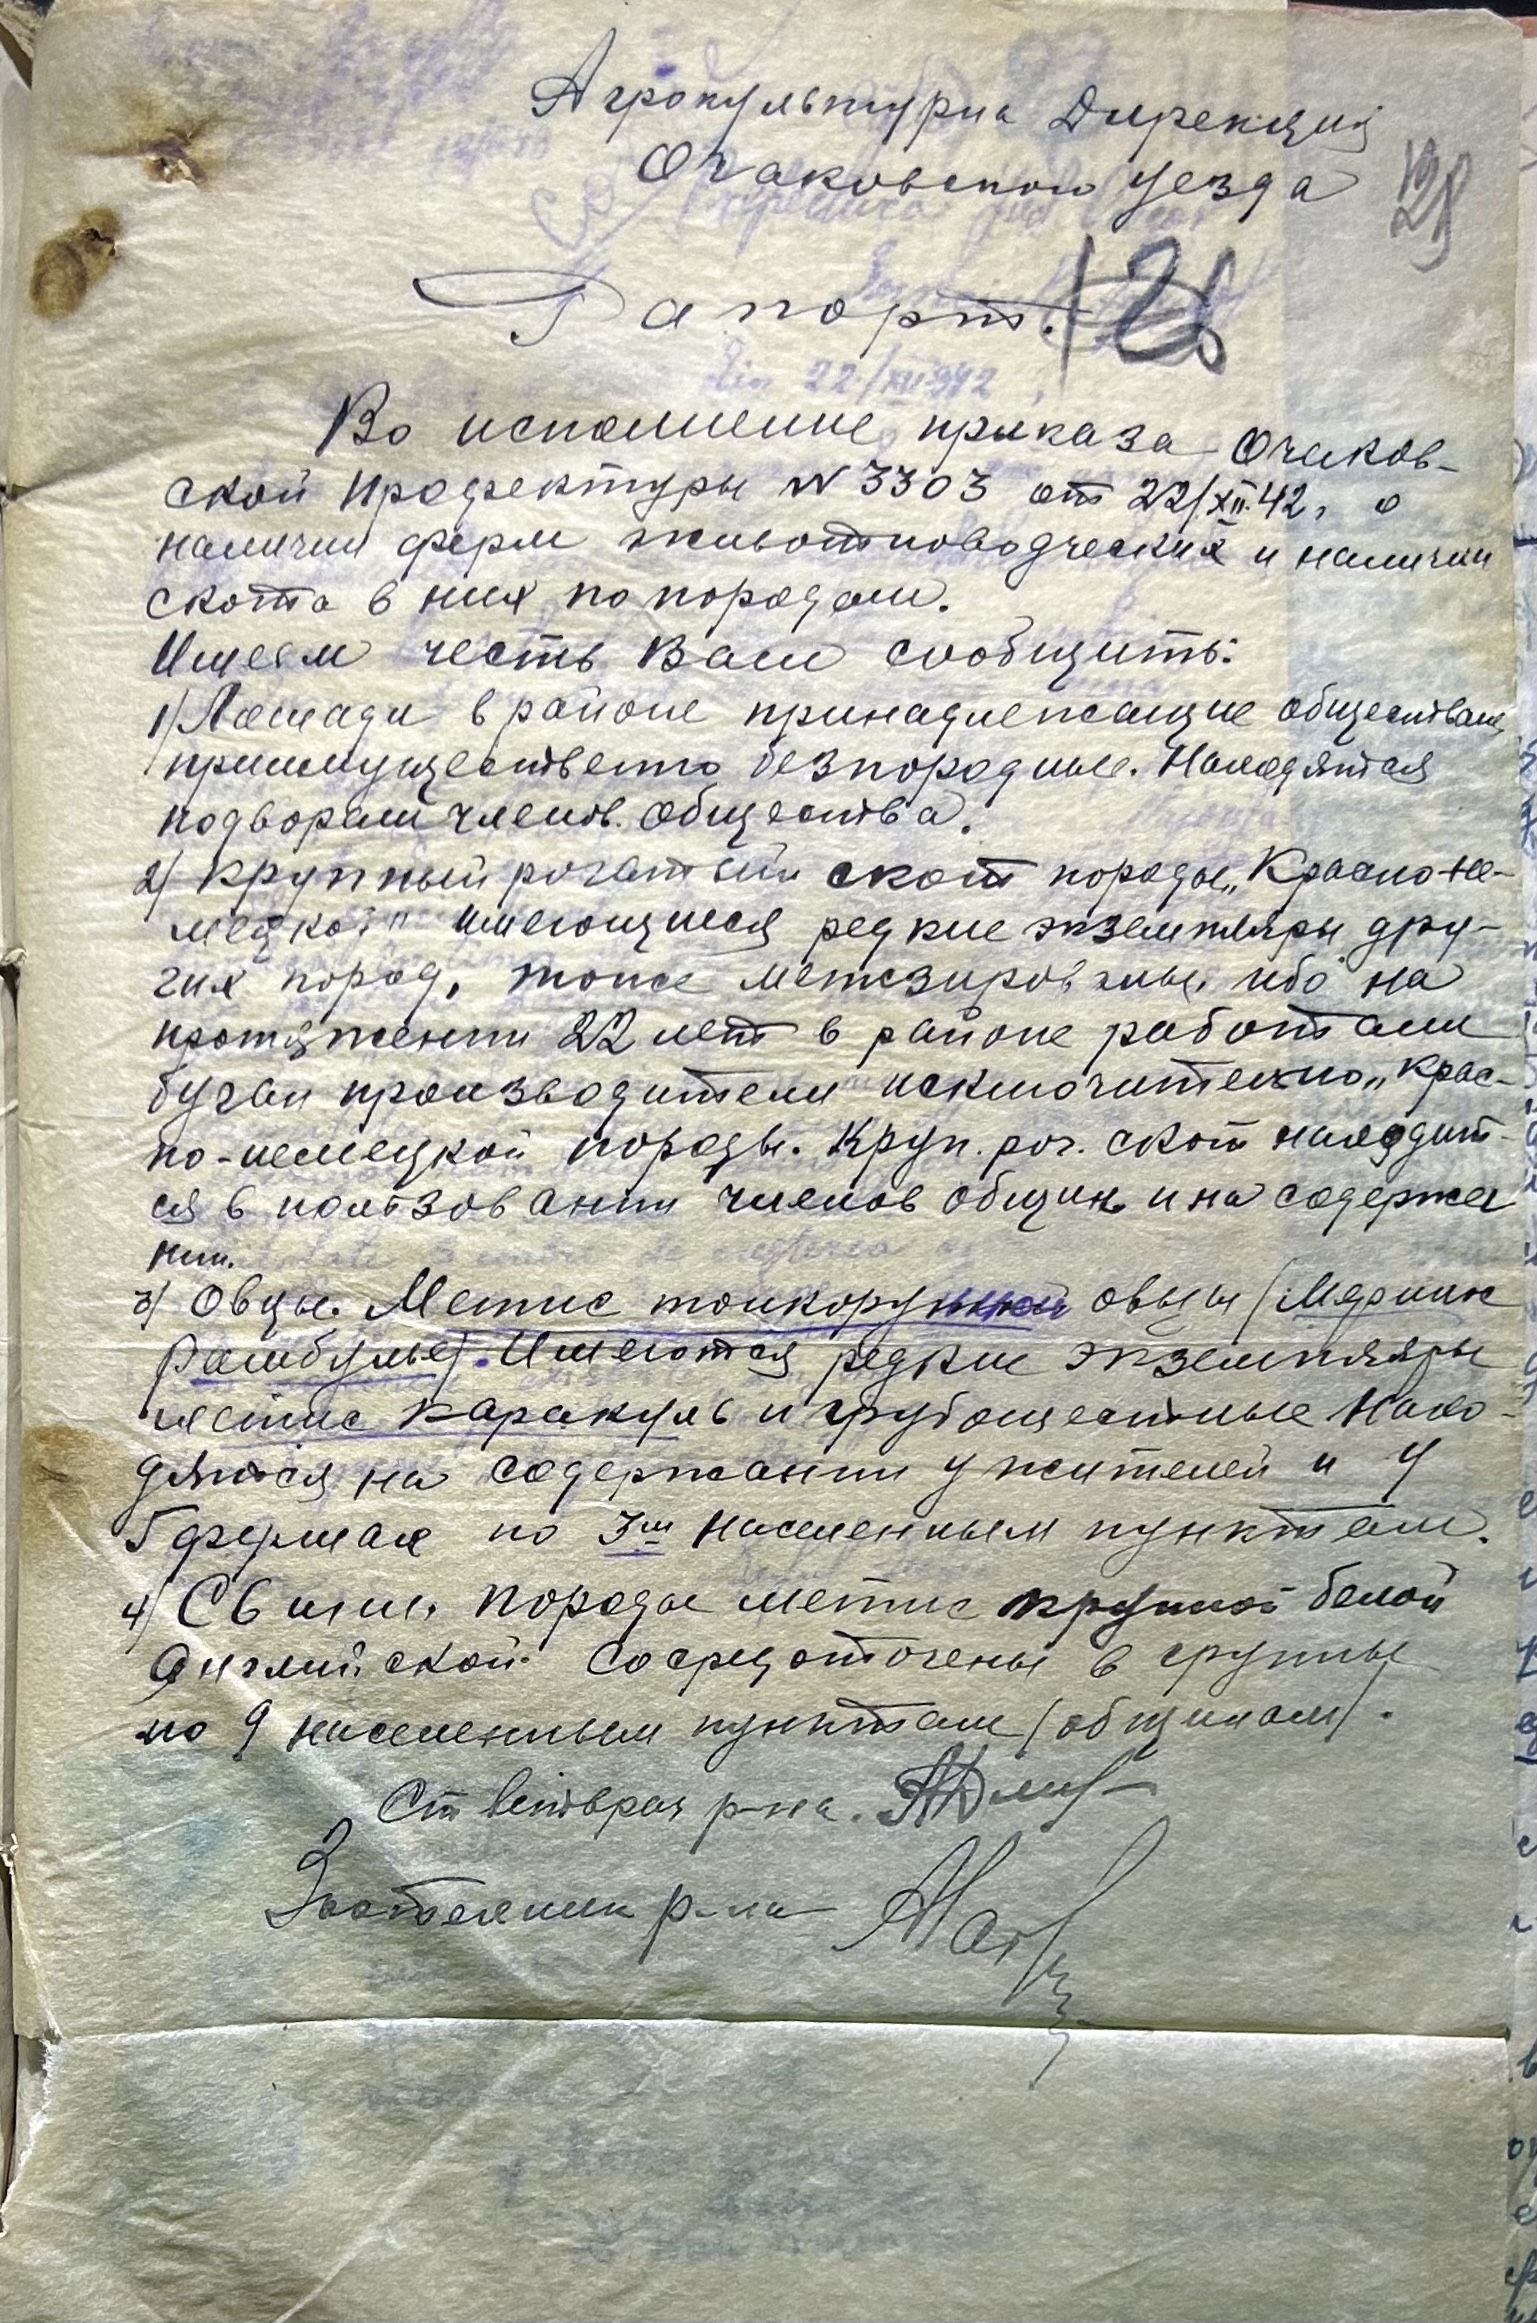 Агрокультурна Дирекция
Очаковского уезда
128
Рапорт.
126
Во исполнение приказа Очаков-
ской Профектуры N 3303 от 22/XII.42, о
наличии ферм животноводческих и наличии
скота в них по породам.
Имеем честь Вам сообщить:
1) Лошади в районе принадлежащие обществам,
приимущественно безпородные. Находятся
подворами членов. общества.
2) Крупный рогатый скот породы „Красно-не-
мецкой" имеющиеся редкие экземпляры дру-
гих пород, тоже метезированы, ибо на
протяжении 22 лет в районе работали
бугаи производители исключительно „Крас-
но-немецкой породы. Круп. рог. скот находит-
ся в пользовании членов общин и на содержа
нии.
3) Овцы. Метис тонкорунной овцы (Меринос
Рамбулье). Имеются редкие экземпляры
метис каракуль и грубошерстные Нахо-
дятся на содержании у жителей и у
5 фермах по 3м населенным пунктам.
4) Свиньи. Породы метис крупной белой
Английской. Сосредоточены в группы
по 9 населенным пунктам (общинам).
Ст ветврач р-на.
Зоотехник р-на